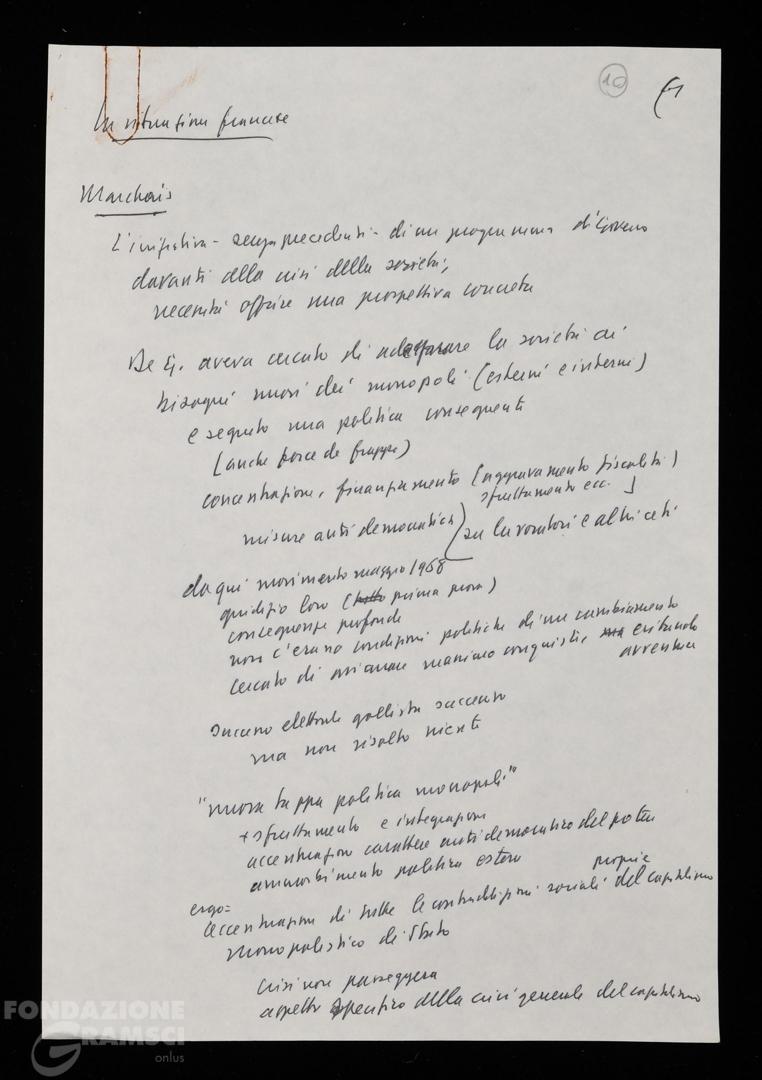 10
La situazione francese
Marchais
L'iniziativa - senza precedenti - di un programma di Governo
davanti alla crisi della società,
necessità offrire una prospettiva concreta
De G. aveva cercato di adeguare la società ai
bisogni nuovi dei monopoli (esterni e interni)
e seguito una politica conseguente
(anche force de frappe)
concentrazione, finanziamento (aggravamento fiscalità)
sfruttamento ecc.
misure antidemocratiche) su lavoratori e altri ceti
da qui movimento maggio 1968
giudizio loro (prima prova)
conseguenze profonde
non c'erano condizioni politiche di un cambiamento
cercato di assicurare massimo conquiste, evitando
avventura
successo elettorale gollista successivo
ma non risolto niente
"nuova tappa politica monopoli"
+ sfruttamento e integrazione
accentuazione carattere antidemocratico del potere
ammorbidimento politica estera
ergo =
accentuazione di tutte le contraddizioni sociali proprie del capitalismo
monopolistico di Stato
crisi non passeggera
aspetto specifico della crisi generale del capitalismo
FONDAZIONE
GRAMSCI
onlus